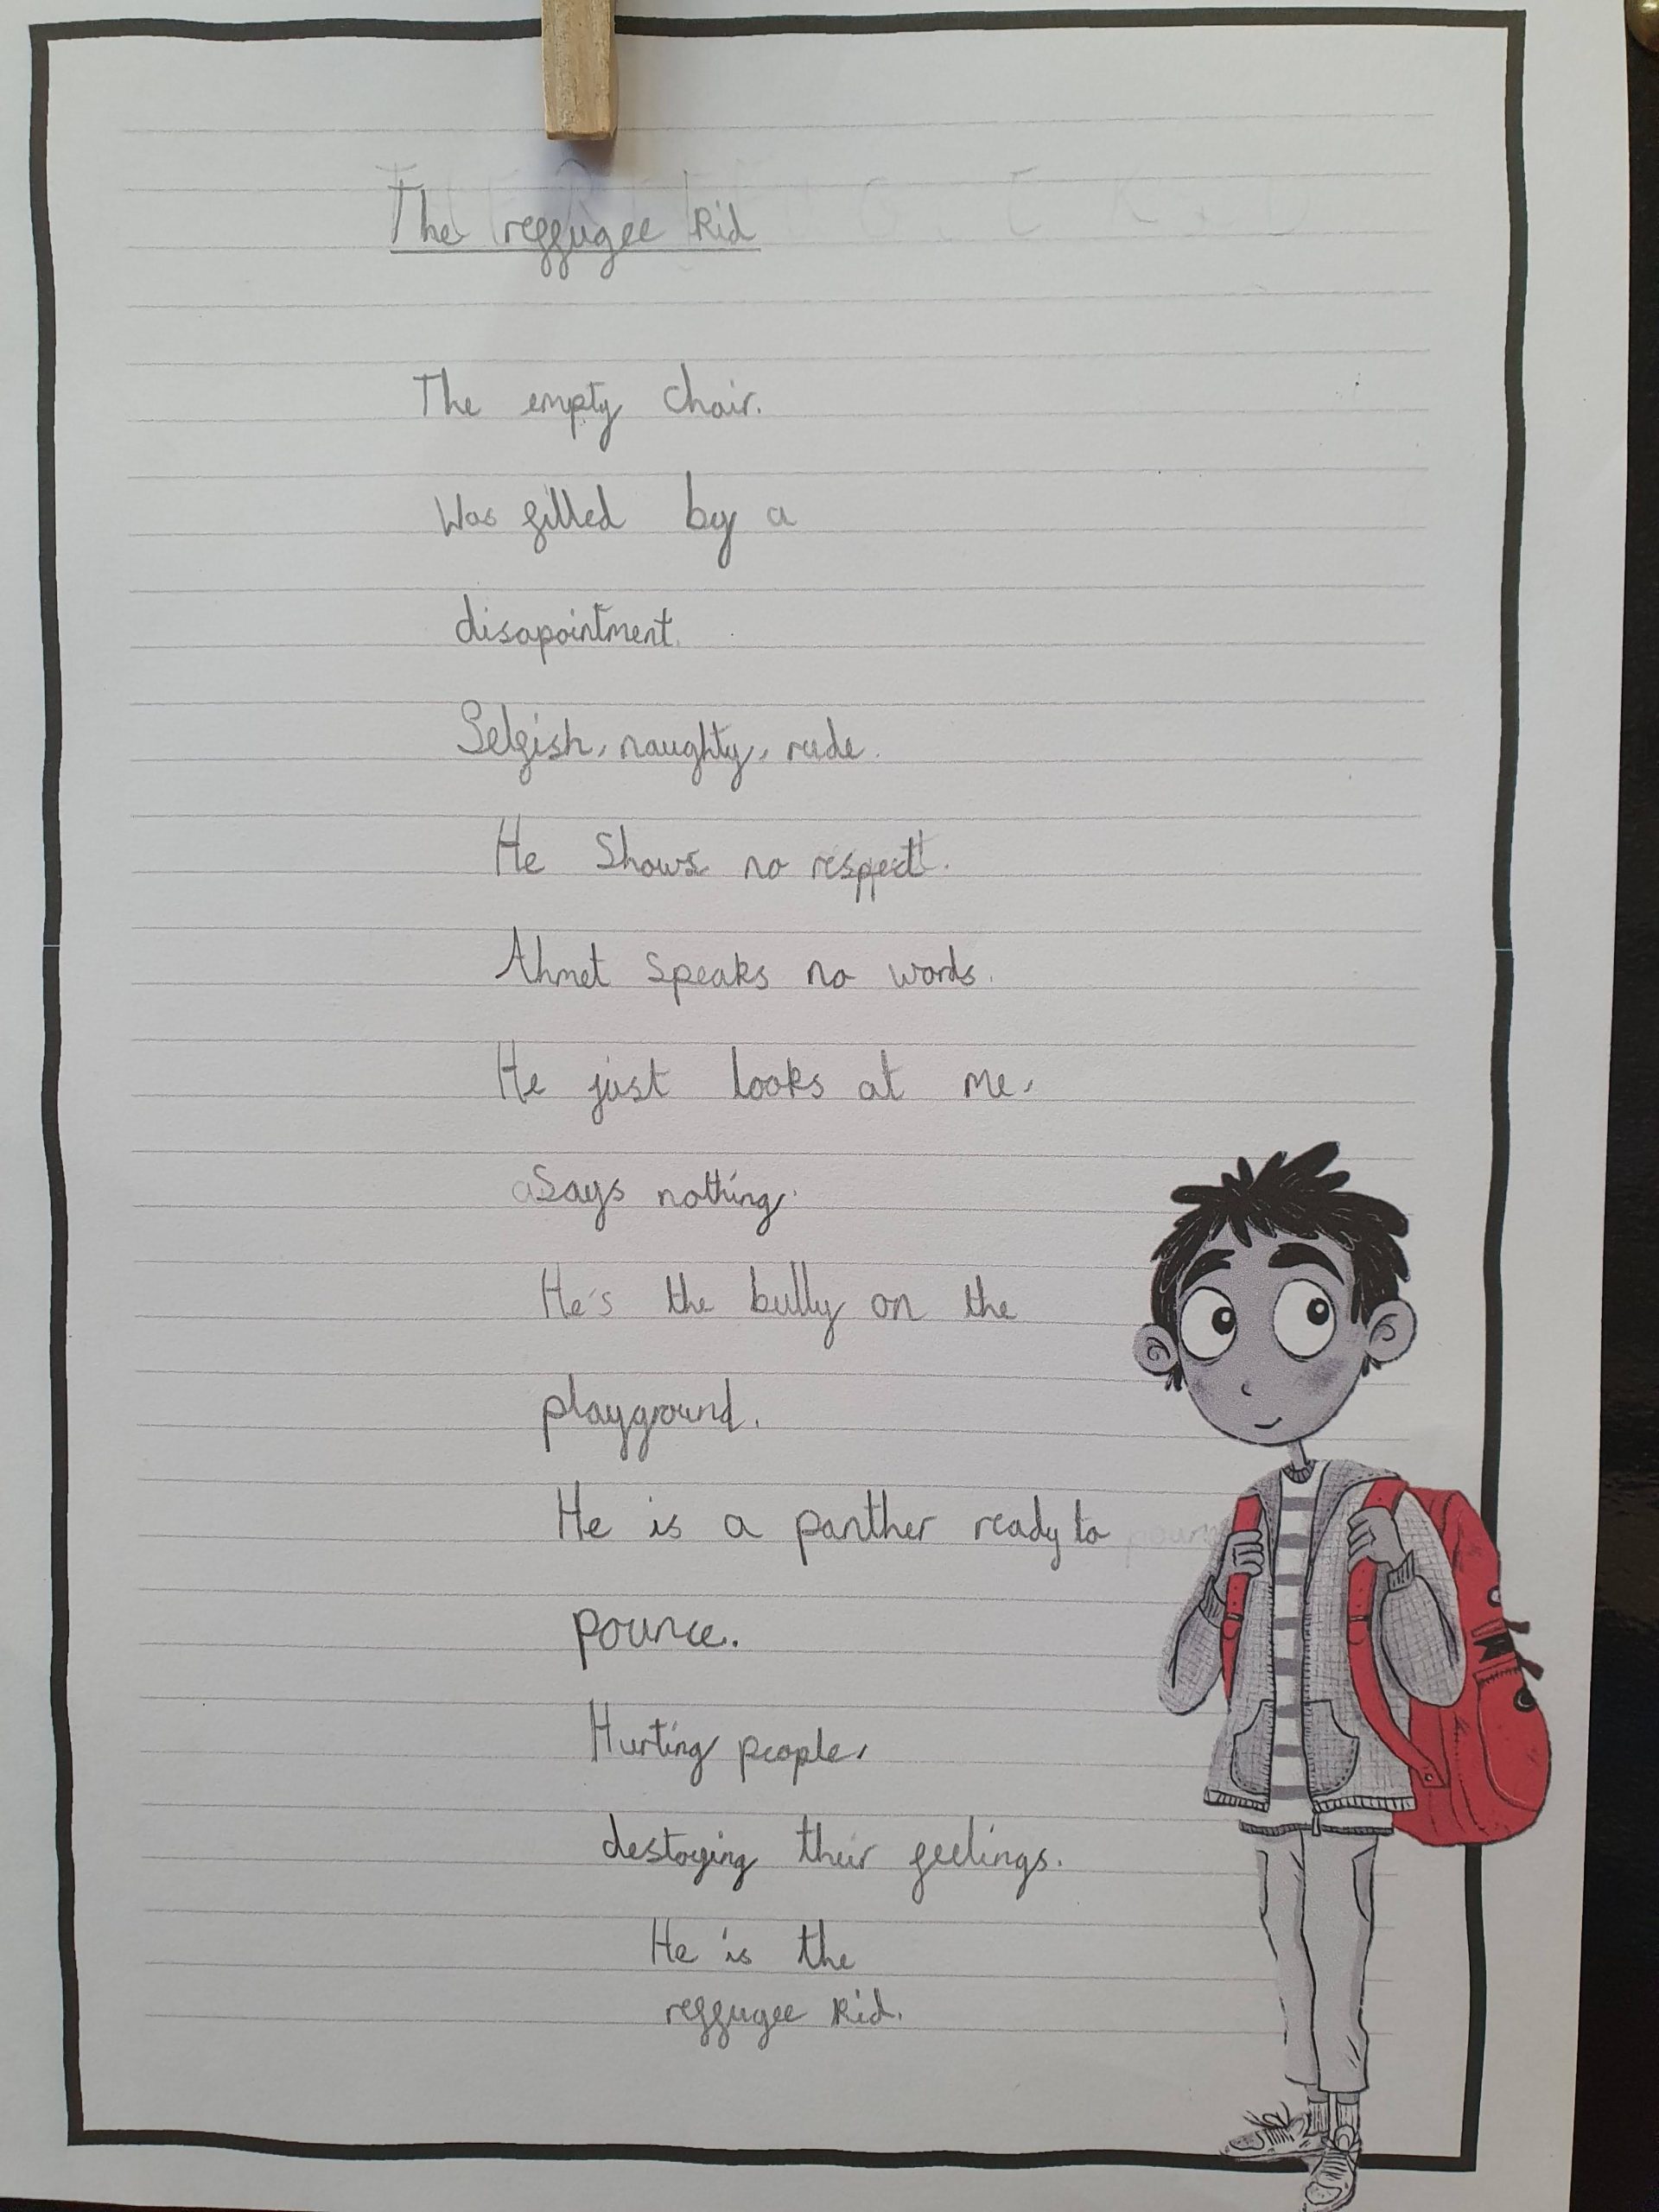 The reffugee kid
The empty chair.
Was filled by a
disapointment.
Selfish, naughty, rude.
He Shows no respect.
Ahmet speaks no words.
He just looks at me,
Says nothing.
He's the bully on the
playground.
He is a panther ready to
pounce.
Hurting people,
destoying their feelings.
He is the
reffugee kid.